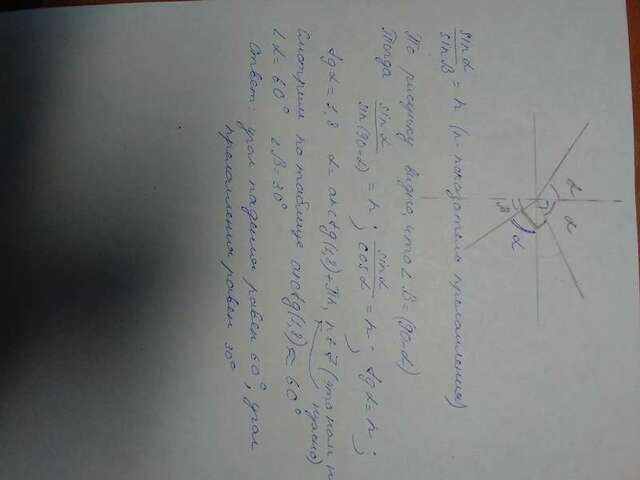 sin α
sin β = n (n-показатель преломления)
По рисунку видно, что ∠ B = (90-α)
Тогда sin α
sin(90-α) = n ; sin α
cos α = n ; tg α = n ;
tg α = 1,8 α = arctg(1,8)+πn, n ∈ Z (это нам не нужно)
Смотрим по таблице arctg(1,8) ≈ 60°
∠ α = 60° ∠ B = 30°
Ответ: угол падения равен 60°, угол
преломления равен 30°
α
α
B
α